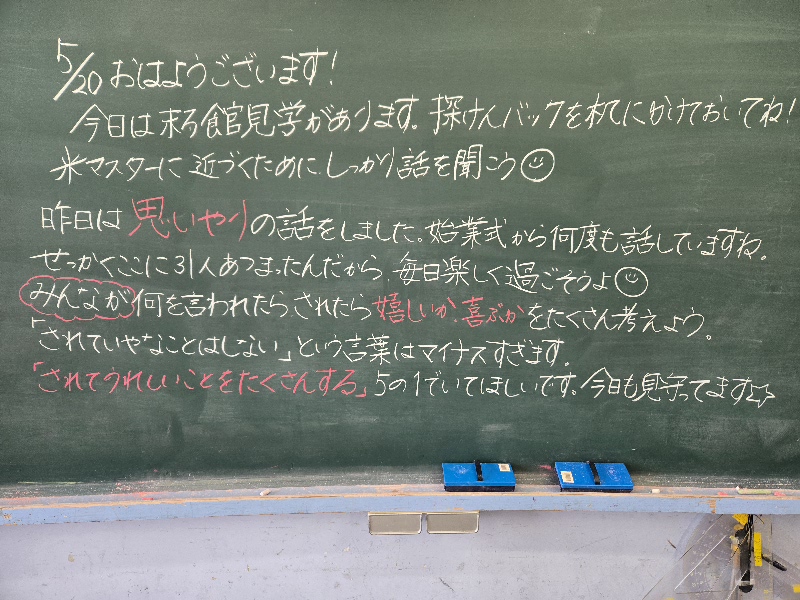 5/20 おはようございます!
今日は末ろ館見学があります。探けんバックを机にかけておいてね!
米マスターに近づくためにしっかり話を聞こう
昨日は思いやりの話をしました。始業式から何度も話していますね。
せっかくここに31人あつまったんだから、毎日楽しく過ごそうよ
みんなが何を言われたらされたら嬉しいか、喜ぶかをたくさん考えよう。
「されていやなことはしない」という言葉はマイナスすぎます。
「されてうれしいことをたくさんする」5の1でいてほしいです。今日も見守ってます☆